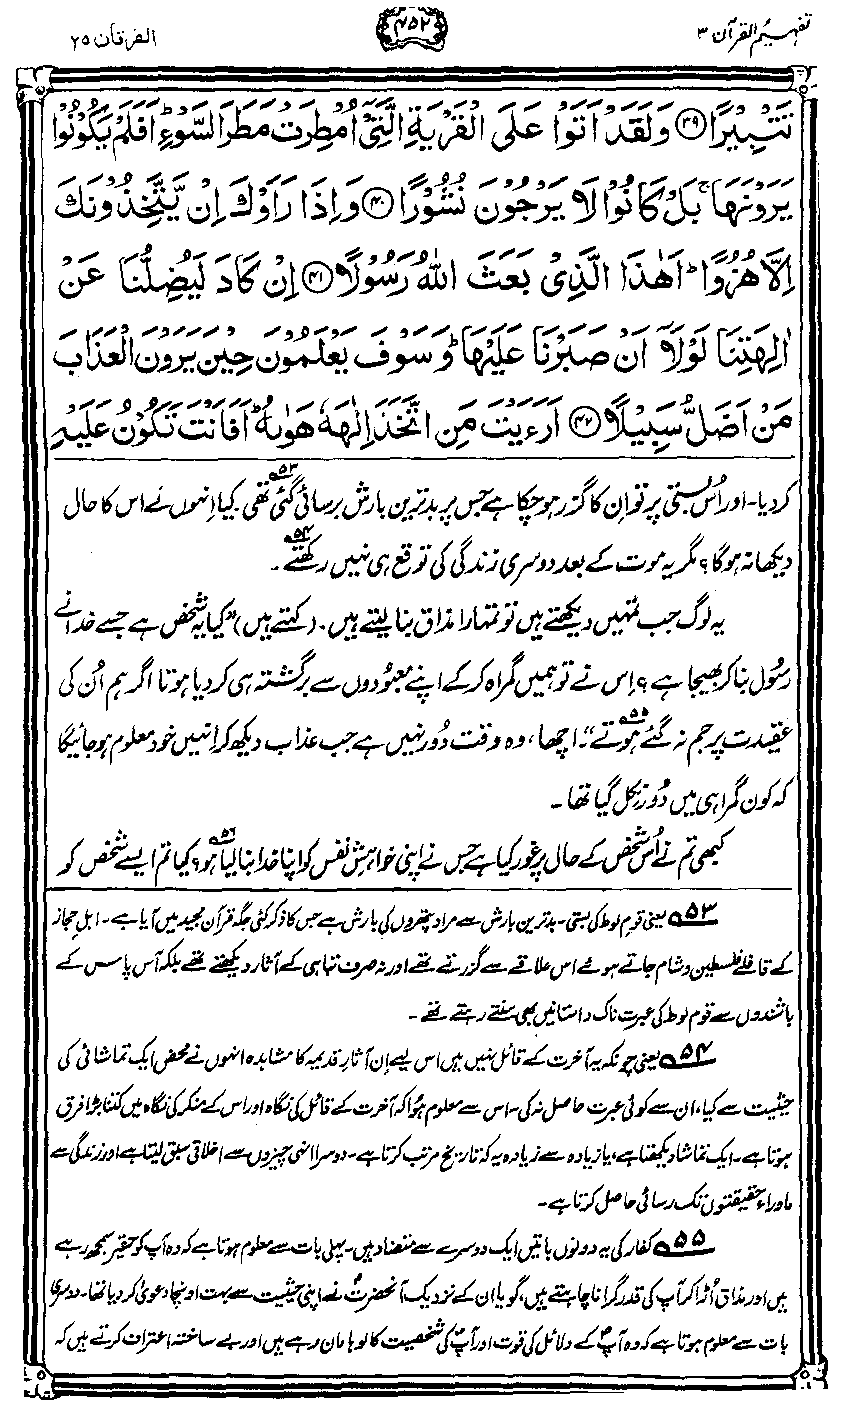 تفہیم القرآن ۳
۴۵۲
الفرقان ۲۵
تَتْبِيْرًا ﴿۳۹﴾ وَلَقَدْ اَتَوْا عَلَى الْقَرْيَةِ الَّتِيْٓ اُمْطِرَتْ مَطَرَ السَّوْءِ ؕ اَفَلَمْ يَكُوْنُوْا
يَرَوْنَهَا ۚ بَلْ كَانُوْا لَا يَرْجُوْنَ نُشُوْرًا ﴿۴۰﴾ وَاِذَا رَاَوْكَ اِنْ يَّتَّخِذُوْنَكَ
اِلَّا هُزُوًا ؕ اَهٰذَا الَّذِيْ بَعَثَ اللّٰهُ رَسُوْلًا ﴿۴۱﴾ اِنْ كَادَ لَيُضِلُّنَا عَنْ
اٰلِهَتِنَا لَوْلَآ اَنْ صَبَرْنَا عَلَيْهَا ؕ وَسَوْفَ يَعْلَمُوْنَ حِيْنَ يَرَوْنَ الْعَذَابَ
مَنْ اَضَلُّ سَبِيْلًا ﴿۴۲﴾ اَرَءَيْتَ مَنِ اتَّخَذَ اِلٰهَهٗ هَوٰىهُ ؕ اَفَاَنْتَ تَكُوْنُ عَلَيْهِ
کر دیا۔ اور اُس بستی پر تو اِن کا گزر ہو چکا ہے جس پر بدترین بارش برسائی گئی تھی۵۳۔ کیا انہوں نے اس کا حال
دیکھا نہ ہوگا؟ مگر یہ موت کے بعد دوسری زندگی کی توقع ہی نہیں رکھتے۵۴۔
یہ لوگ جب تمہیں دیکھتے ہیں تو تمہارا مذاق بنا لیتے ہیں۔ (کہتے ہیں) ”کیا یہ شخص ہے جسے خدا نے
رسُول بنا کر بھیجا ہے؟ اِس نے تو ہمیں گمراہ کر کے اپنے معبُودوں سے برگشتہ ہی کر دیا ہوتا اگر ہم اُن کی
عقیدت پر جم نہ گئے ہوتے“۵۵۔ اچھا، وہ وقت دُور نہیں ہے جب عذاب دیکھ کر انہیں خود معلوم ہو جائیگا
کہ کون گمراہی میں دُور نکل گیا تھا۔
کبھی تم نے اُس شخص کے حال پر غور کیا ہے جس نے اپنی خواہشِ نفس کو اپنا خدا بنا لیا ہو۵۶؟ کیا تم ایسے شخص کو
۵۳ یعنی قومِ لوط کی بستی۔ بدترین بارش سے مراد پتھروں کی بارش ہے جس کا ذکر کئی جگہ قرآن مجید میں آیا ہے۔ اہلِ حجاز
کے قافلے فلسطین و شام جاتے ہوئے اس علاقے سے گزرتے تھے اور نہ صرف تباہی کے آثار دیکھتے تھے بلکہ آس پاس کے
باشندوں سے قوم لوط کی عبرت ناک داستانیں بھی سنتے رہتے تھے۔
۵۴ یعنی چونکہ یہ آخرت کے قائل نہیں ہیں اس لیے اِن آثارِ قدیمہ کا مشاہدہ انہوں نے محض ایک تماشائی کی
حیثیت سے کیا، ان سے کوئی عبرت حاصل نہ کی۔ اس سے معلوم ہُوا کہ آخرت کے قائل کی نگاہ اور اس کے منکر کی نگاہ میں کتنا بڑا فرق
ہوتا ہے۔ ایک تماشا دیکھتا ہے، یا زیادہ سے زیادہ یہ کہ تاریخ مرتب کرتا ہے۔ دوسرا انہی چیزوں سے اخلاقی سبق لیتا ہے اور زندگی سے
ماوراء حقیقتوں تک رسائی حاصل کرتا ہے۔
۵۵ کفار کی یہ دونوں باتیں ایک دوسرے سے متضاد ہیں۔ پہلی بات سے معلوم ہوتا ہے کہ وہ آپ کو حقیر سمجھ رہے
ہیں اور مذاق اُڑا کر آپ کی قدر گرانا چاہتے ہیں، گویا ان کے نزدیک آنحضرتؐ نے اپنی حیثیت سے بہت اونچا دعویٰ کر دیا تھا۔ دوسری
بات سے معلوم ہوتا ہے کہ وہ آپؐ کے دلائل کی قوت اور آپؐ کی شخصیت کا لوہا مان رہے ہیں اور بے ساختہ اعتراف کرتے ہیں کہ